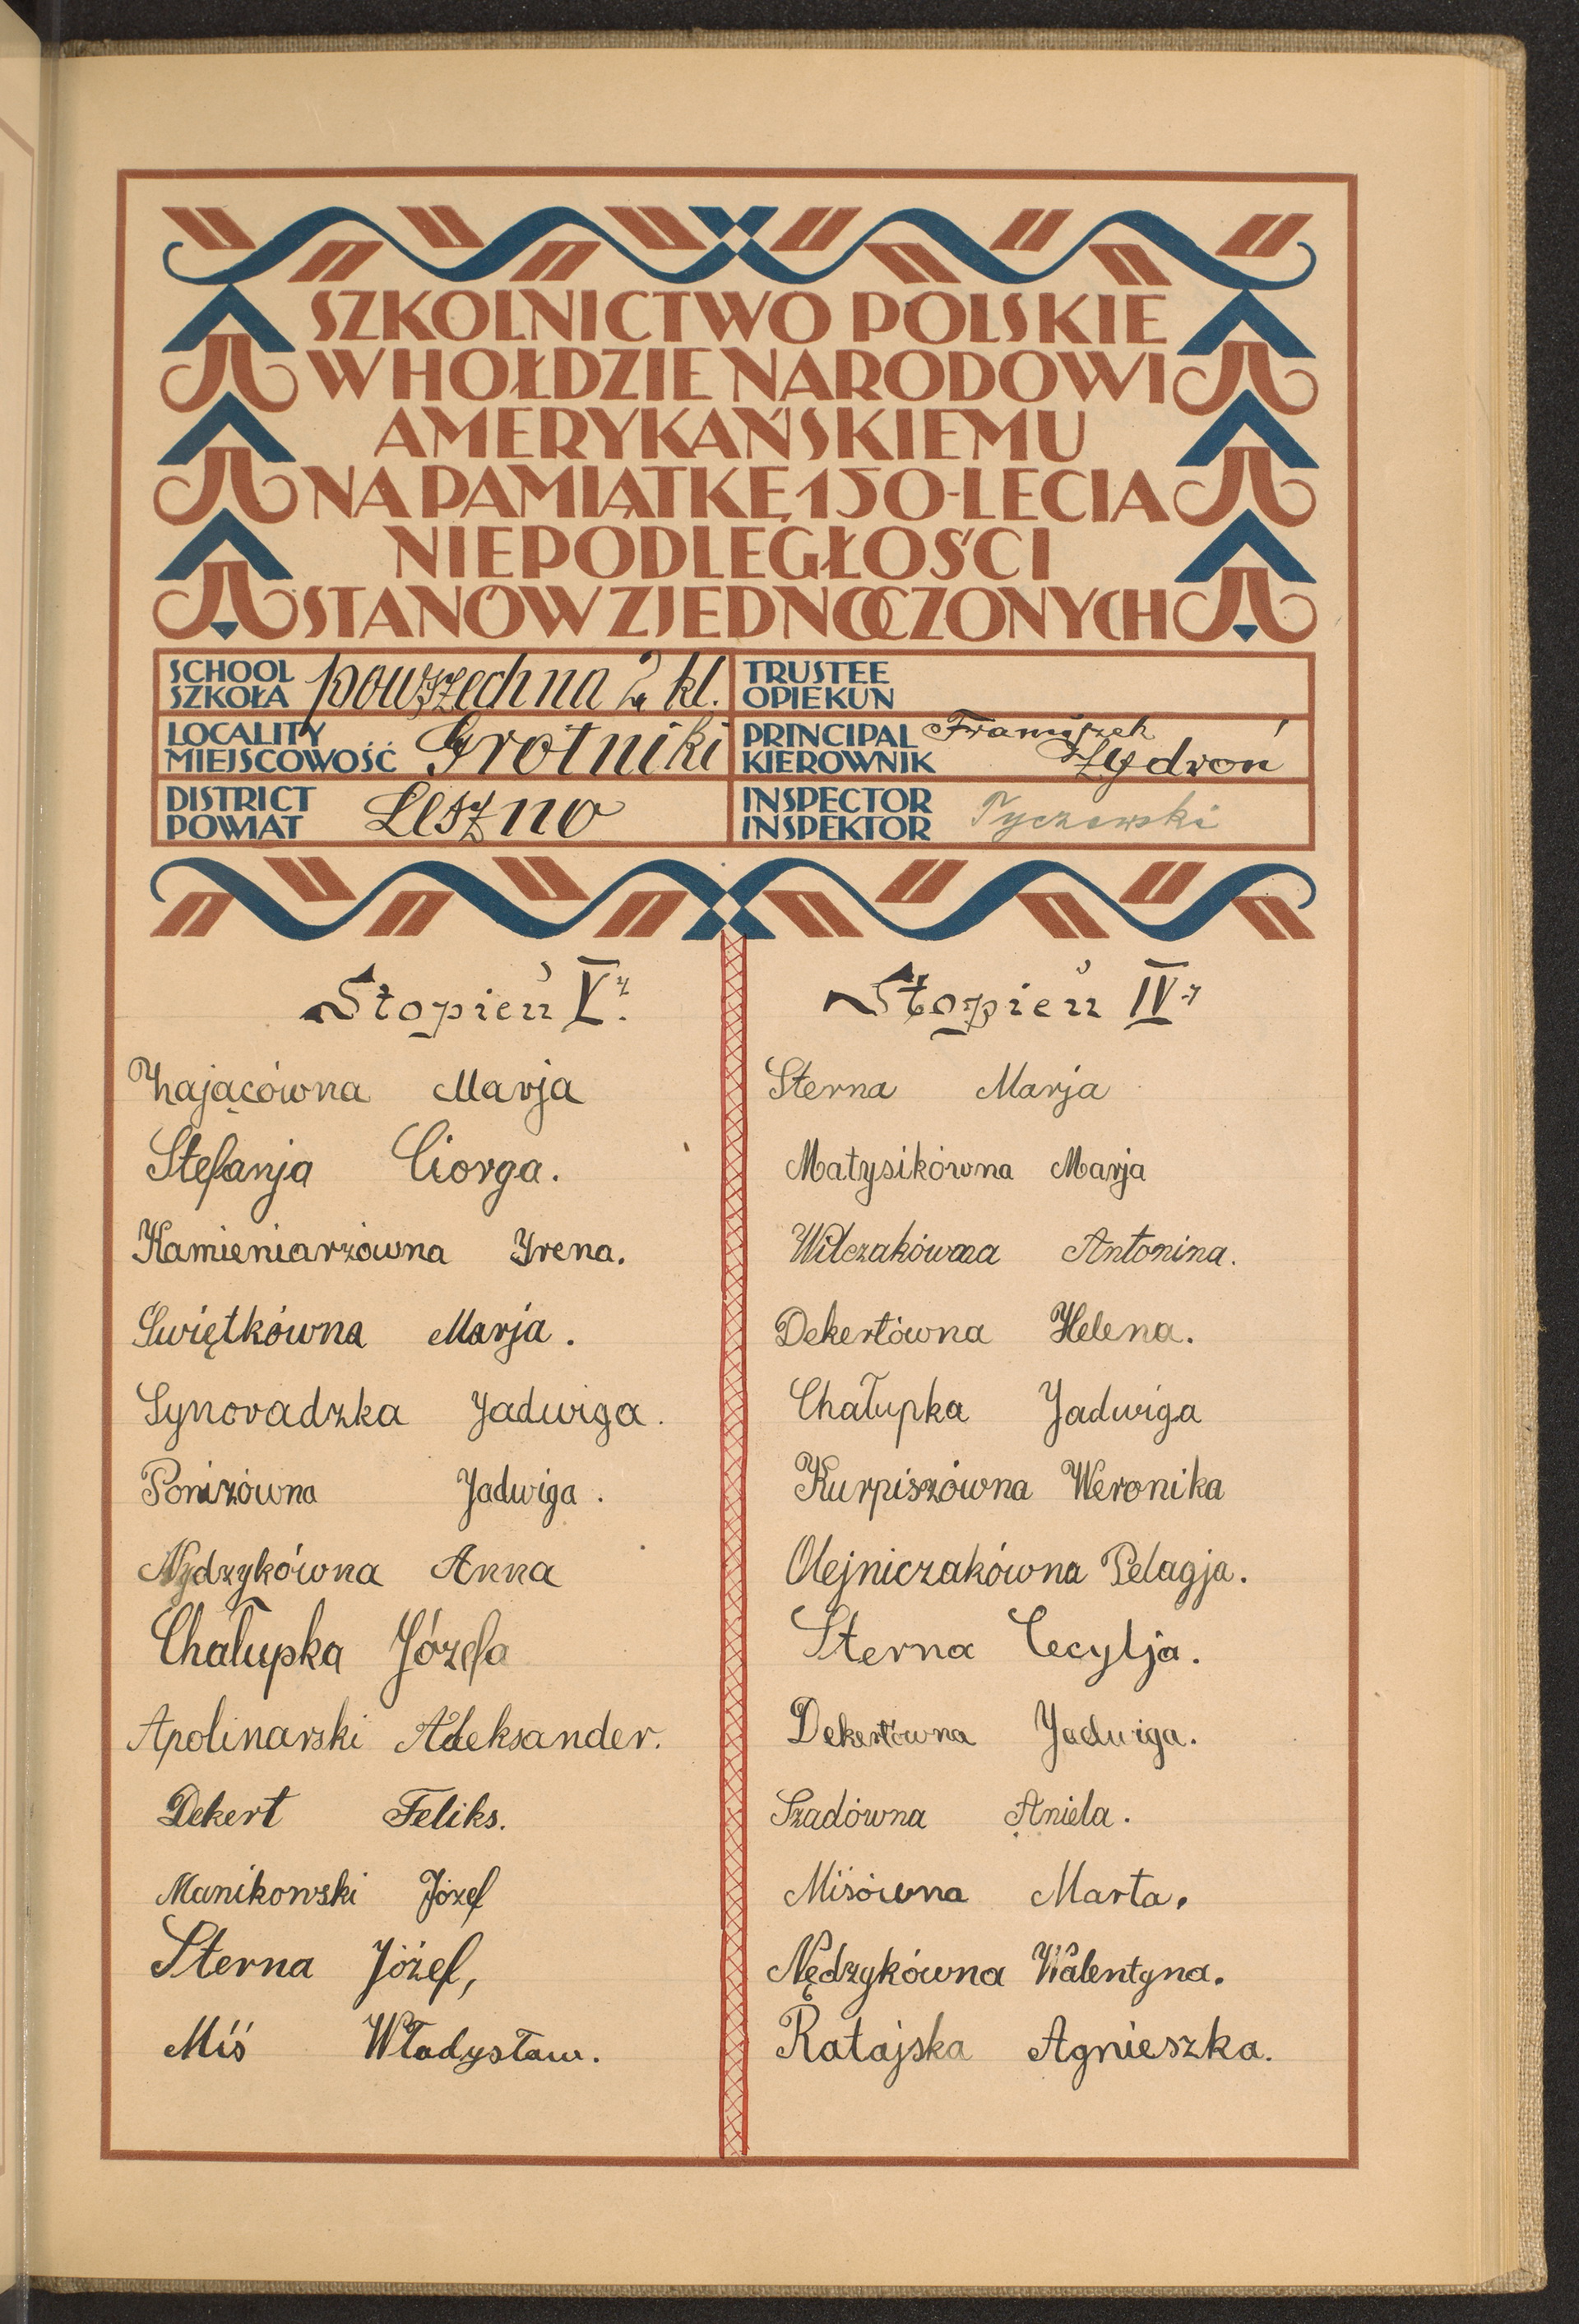 SZKOLNICTWO POLSKIE
W HOŁDZIE NARODOWI
AMERYKAŃSKIEMU
NA PAMIĄTKĘ 150-LECIA
NIEPODLEGŁOŚCI
STANÓW ZJEDNOCZONYCH
SCHOOL
SZKOŁA powszechna 2 kl.
TRUSTEE
OPIEKUN
LOCALITY
MIEJSCOWOŚĆ Grotniki
PRINCIPAL Franciszek
KIEROWNIK Żydroń
DISTRICT
POWIAT Leszno
INSPECTOR
INSPEKTOR Tyczewski
Stopień V.
Zającówna Marja
Stefanja Ciorga.
Kamieniarzówna Irena.
Świętkówna Marja.
Synoradzka Jadwiga.
Ponizówna Jadwiga.
Nędzykówna Anna
Chałupka Józefa
Apolinarski Aleksander.
Dekert Feliks.
Manikowski Józef
Sterna Józef,
Miś Władysław.
Stopień IV.
Sterna Marja
Matysikówna Marja
Wilczakówna Antonina.
Dekertówna Helena.
Chałupka Jadwiga
Kurpiszówna Weronika
Olejniczakówna Pelagja.
Sterna Cecylja.
Dekertówna Jadwiga.
Szadówna Aniela.
Misówna Marta.
Nędzykówna Walentyna.
Ratajska Agnieszka.